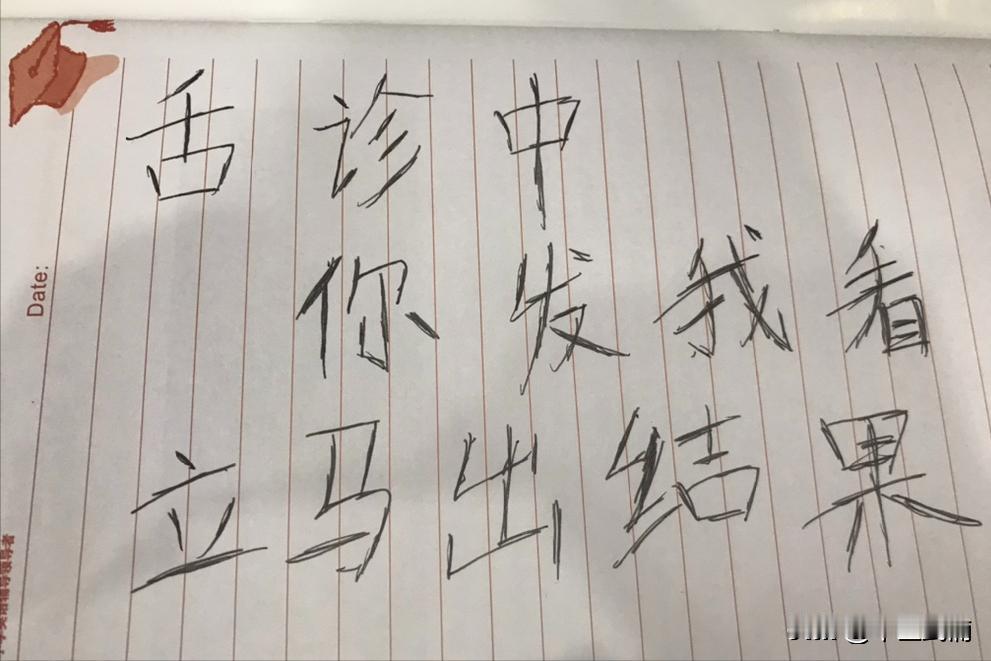 舌诊中
你发我看
立马出结果
Date: